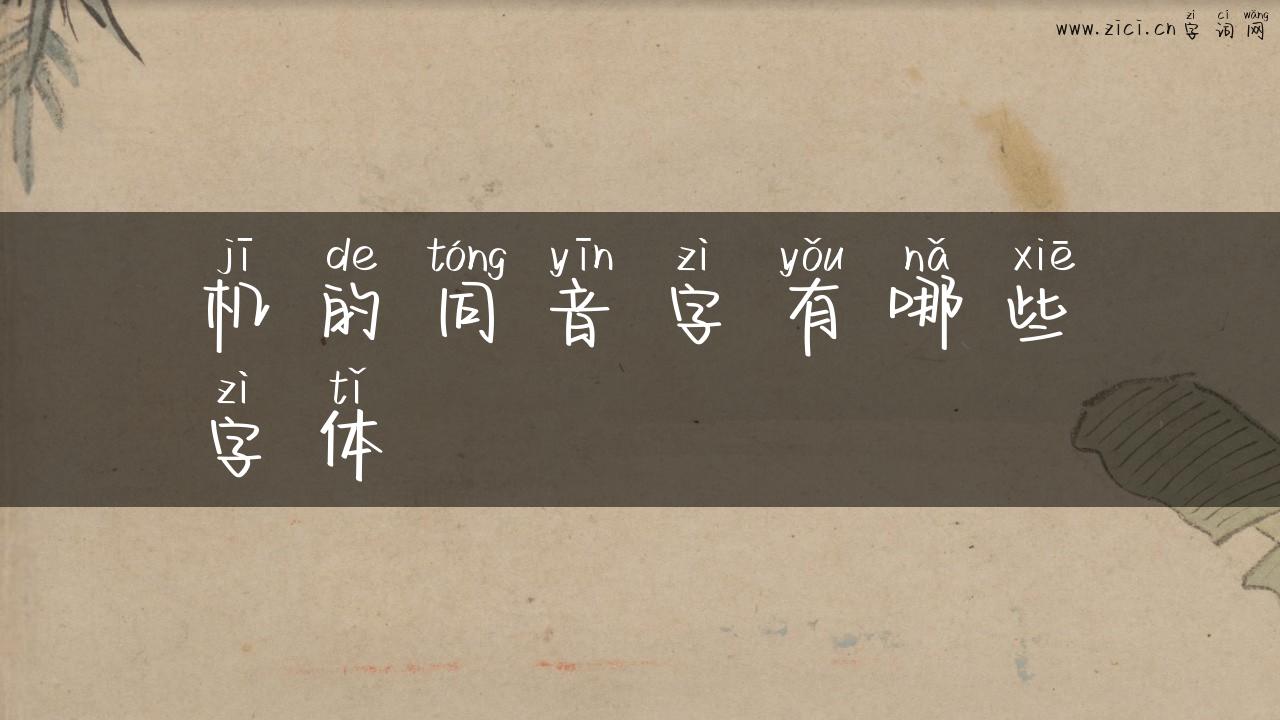 zì cí wǎng
www.zici.cn 字词网
jī de tóng yīn zì yǒu nǎ xiē
机的同音字有哪些
zì tǐ
字体